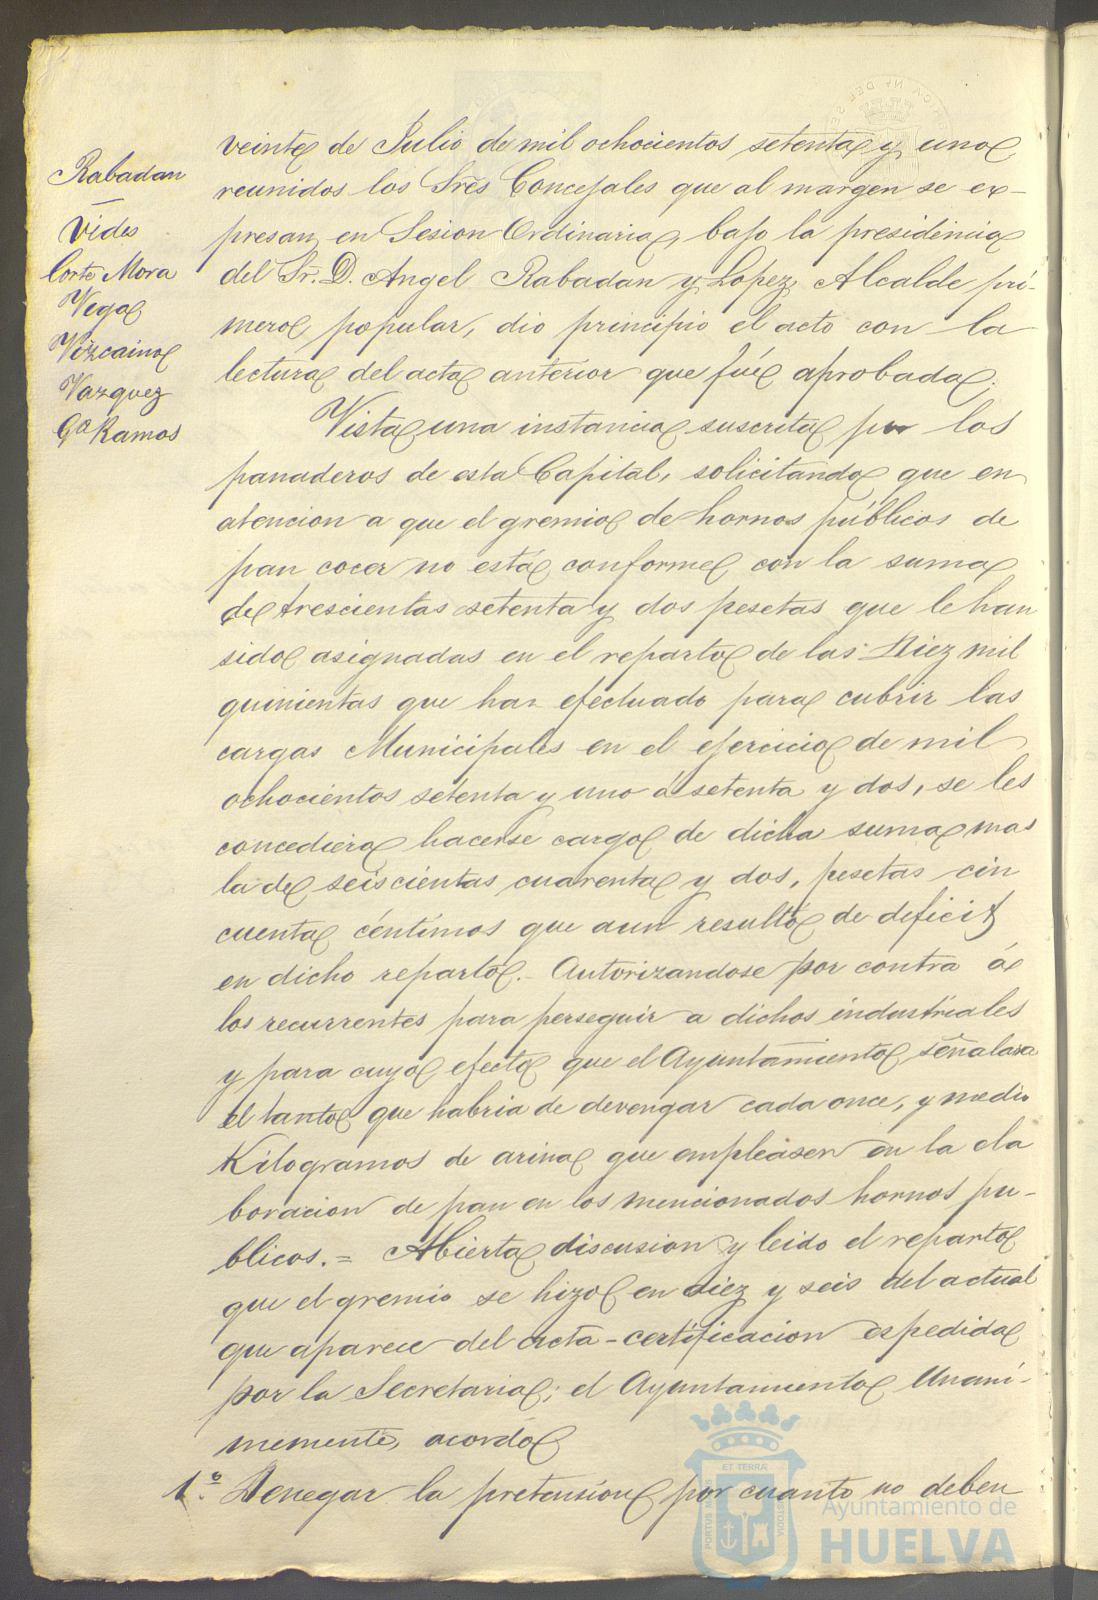 Rabadan
Vides
Corte Mora
Vega
Vizcaino
Vazquez
Gª Ramos
veinte de Julio de mil ochocientos setenta y uno
reunidos los Sres Concejales que al margen se ex-
presan, en Sesion Ordinaria, bajo la presidencia
del Sr. D. Angel Rabadan y Lopez, Alcalde pri-
mero, popular, dio principio el acto con la
lectura del acta anterior que fué aprobada;
Vista una instancia suscrita por los
panaderos de esta Capital, solicitando que en
atencion a que el gremio de hornos públicos de
pan cocer no está conforme con la suma
de trescientas setenta y dos pesetas que le han
sido asignadas en el reparto de las Diez mil
quinientas que han efectuado para cubrir las
cargas Municipales en el ejercicio de mil
ochocientos setenta y uno á setenta y dos, se les
concediera hacerse cargo de dicha suma mas
la de seiscientas cuarenta y dos, pesetas cin
cuenta céntimos que aun resultó de deficit
en dicho reparto. Autorizandose por contra á
los recurrentes para perseguir a dichos industriales
y para cuyo efecto que el Ayuntamiento señalara
el tanto que habria de devengar cada once, y medio
Kilogramos de arina que empleasen en la ela
boracion de pan en los mencionados hornos pu-
blicos. = Abierta discusion y leido el reparto
que el gremio se hizo en diez y seis del actual
que aparece del acta-certificacion espedida
por la Secretaria; el Ayuntamiento Unani-
memente, acordó
1.º Denegar la pretension por cuanto no deben
ET TERRA
PORTUS MARIS
CUSTODIA
Ayuntamiento de
HUELVA